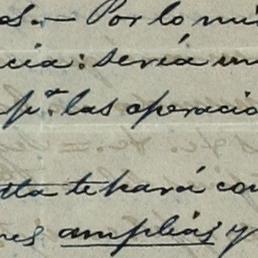 s.— Por lo mi
cia: sería un
pª. las operacio
tta te hará con
res amplias y